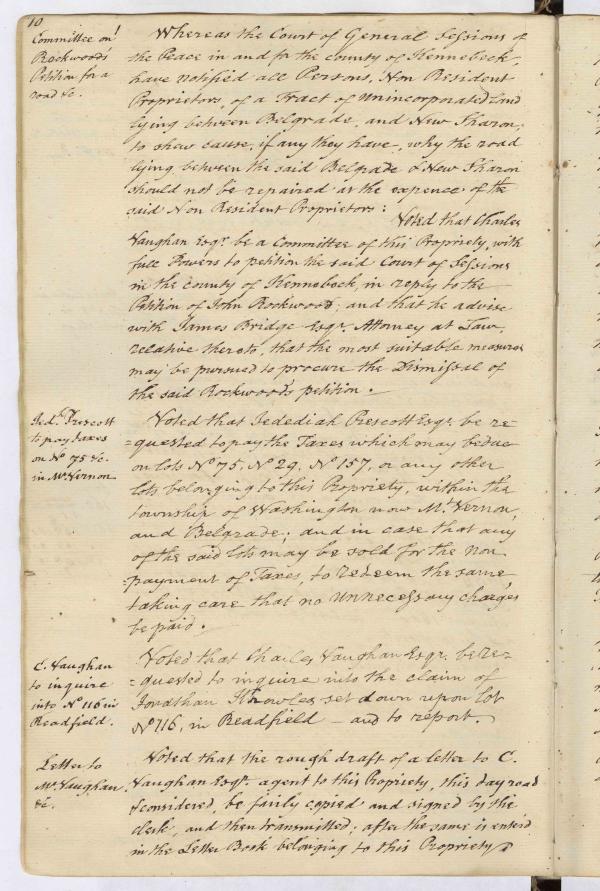 10
Committee on
Rockwood's
Petition for a
road &c.
Whereas the Court of General Sessions of
the Peace in and for the County of Kennebeck,
have notified all Persons, Non Resident
Proprietors, of a Tract of Unincorporated Land
lying between Belgrade, and New Sharon,
to shew cause, if any they have, why the road
lying between the said Belgrade & New Sharon
should not be repaired at the expence of the
said Non Resident Proprietors:
Voted that Charles
Vaughan Esqr. be a Committee of this Propriety, with
full Powers to petition the said Court of Sessions
in the County of Kennebeck, in reply to the
Petition of John Rockwood, and that he advise
with James Bridge Esqr. Attorney at Law,
relative thereto, that the most suitable measures
may be pursued to procure the Dismissal of
the said Rockwood's petition.
Jedh. Prescott
to pay taxes
on No 75 &c.
in Mt. Vernon
Voted that Jedediah Prescott Esqr. be re-
=quested to pay the Taxes which may be due
on lots No 75, No 29, No 157, or any other
lots belonging to this Propriety, within the
township of Washington now Mt. Vernon,
and Belgrade; and in case that any
of the said lots may be sold for the non
=payment of Taxes, to redeem the same
taking care that no unnecessary charges
be paid.
C. Vaughan
to inquire
into No 116 in
Readfield.
Voted that Charles Vaughan Esqr. be re=
=quested to inquire into the claim of
Jonathan Knowles set down upon lot
No 116, in Readfield — and to report.
Letter to
Mr. Vaughan
&c.
Voted that the rough draft of a letter to C.
Vaughan Esqr. agent to this Propriety, this day read
& considered, be fairly copied and signed by the
clerk, and then transmitted; after the same is enter'd
in the Letter Book belonging to this Propriety